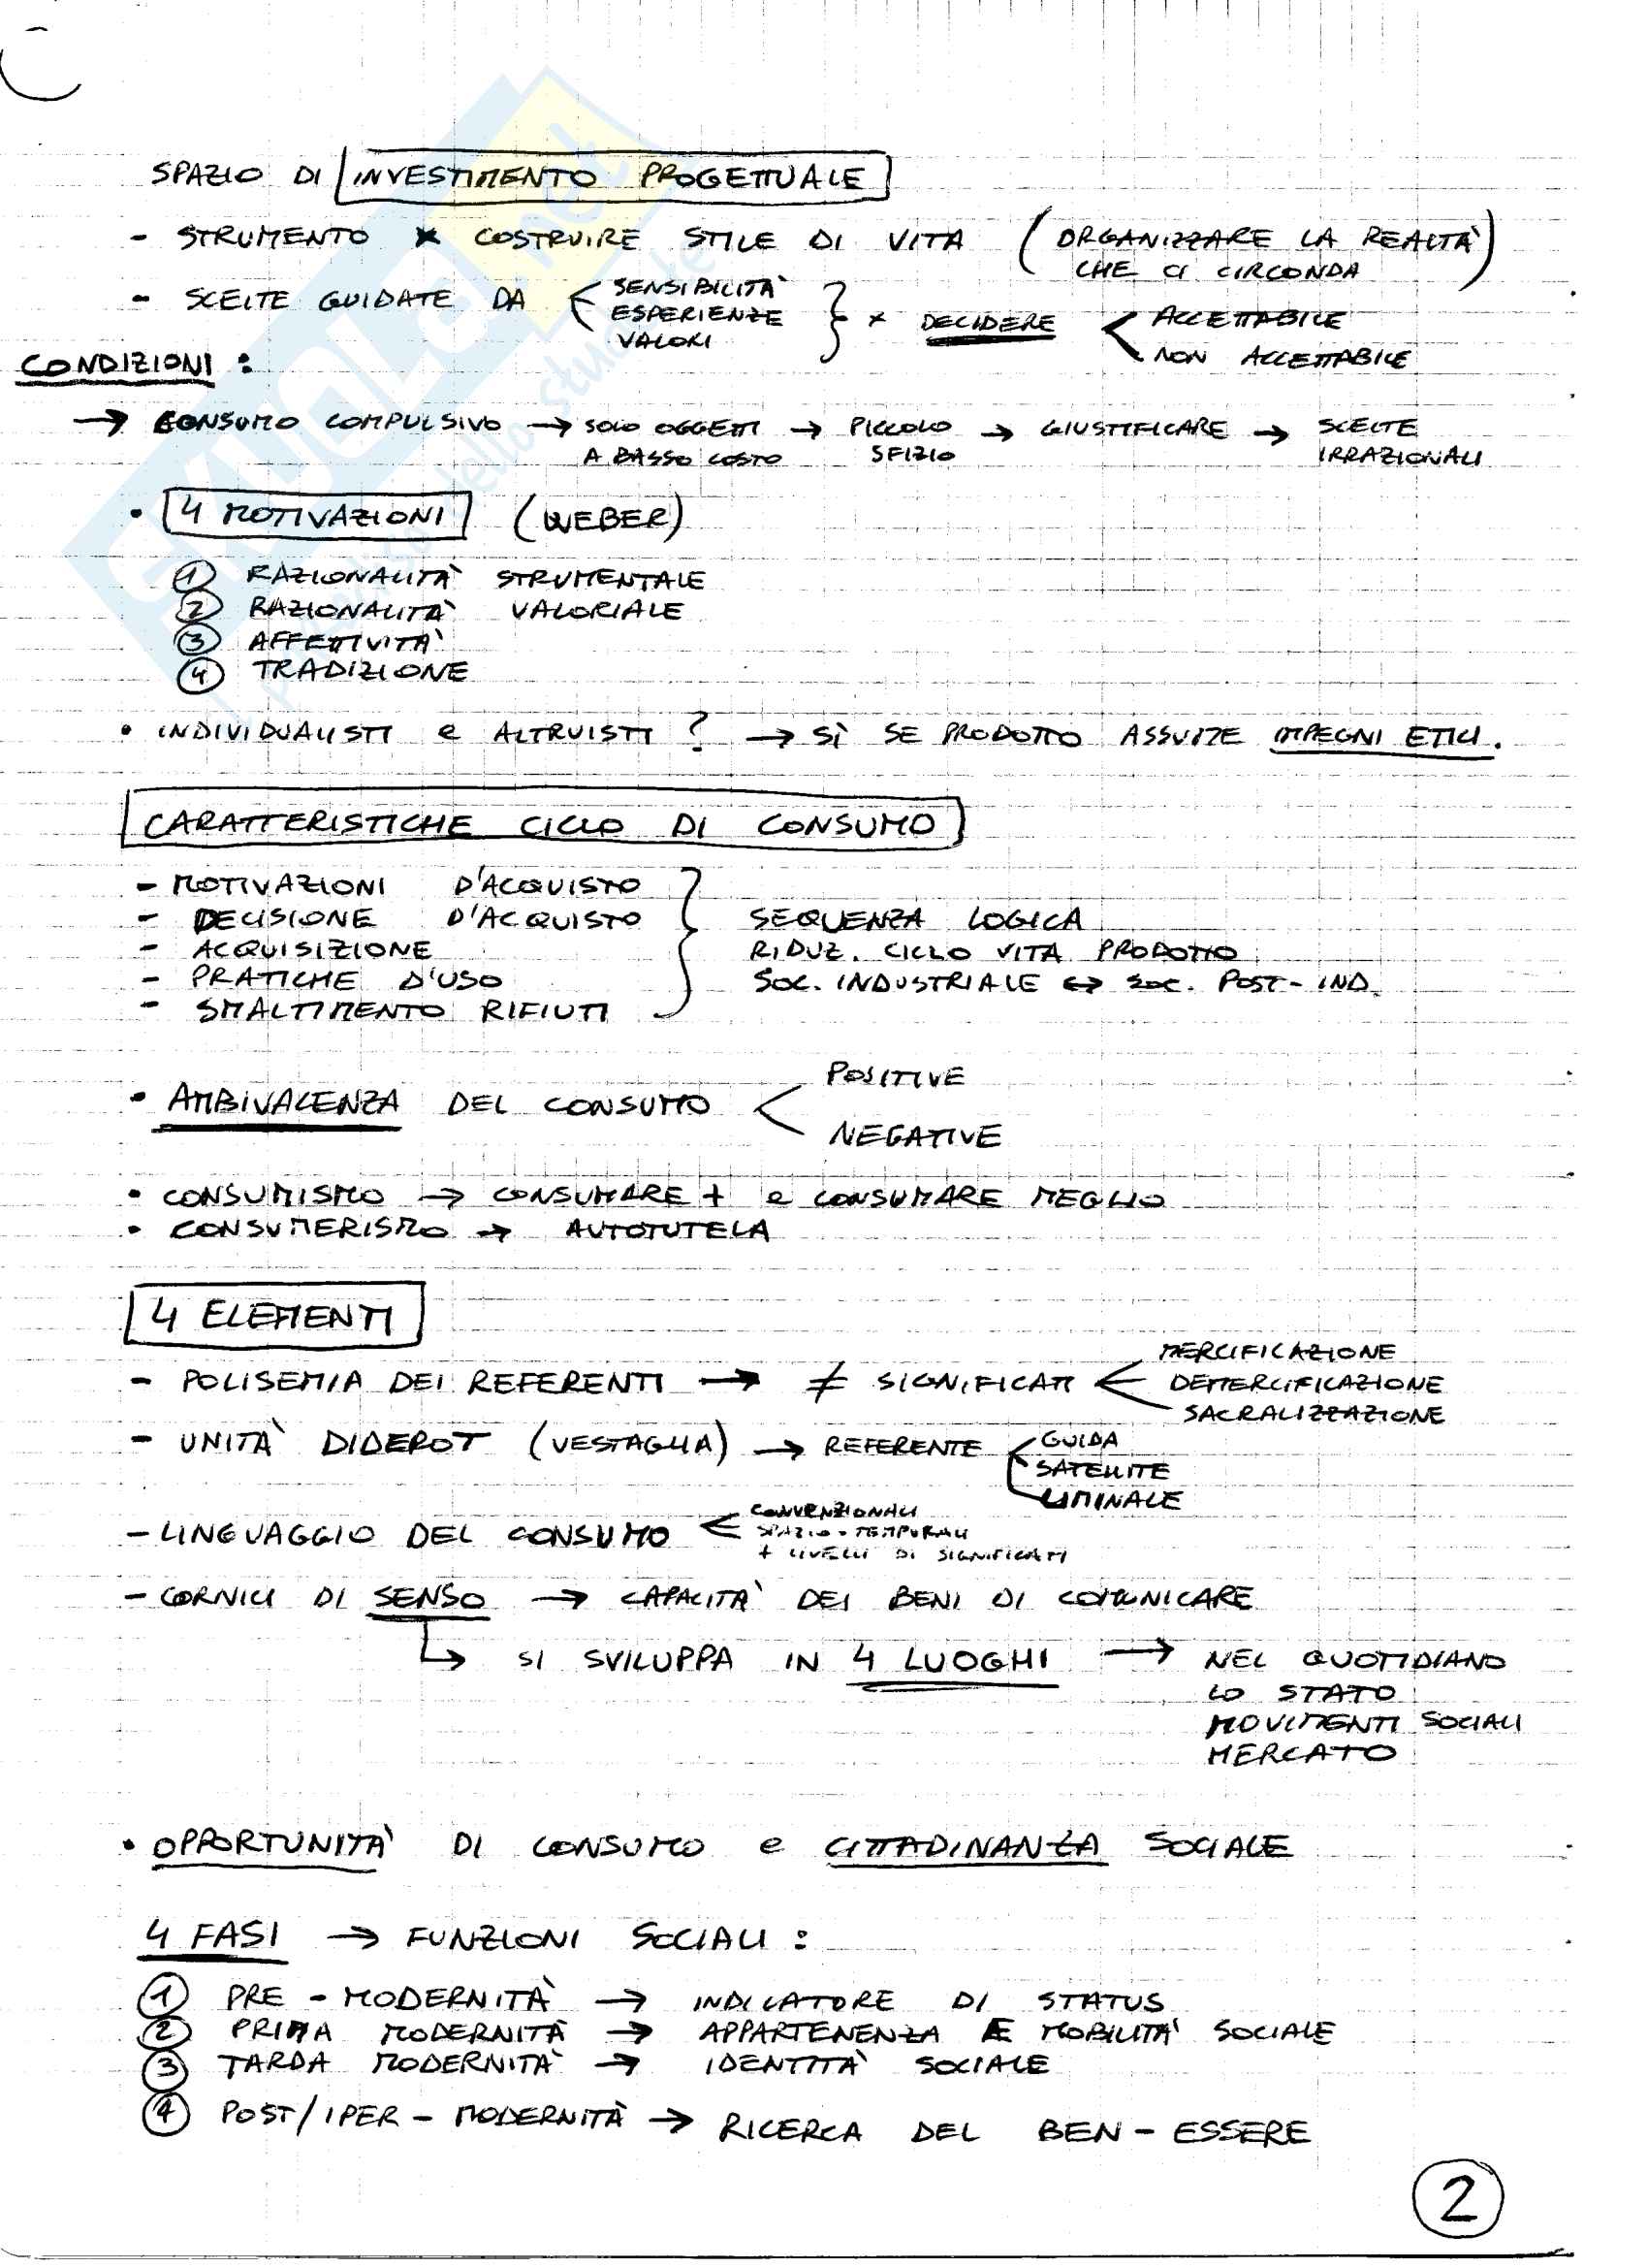 SPAZIO DI INVESTIMENTO PROGETTUALE
- STRUMENTO × COSTRUIRE STILE DI VITA (ORGANIZZARE LA REALTÀ
CHE CI CIRCONDA)
- SCELTE GUIDATE DA < SENSIBILITÀ
ESPERIENZE
VALORI } × DECIDERE < ACCETTABILE
NON ACCETTABILE
CONDIZIONI :
→ CONSUMO COMPULSIVO → SOLO OGGETTI → PICCOLO → GIUSTIFICARE → SCELTE
A BASSO COSTO SFIZIO IRRAZIONALI
• 4 MOTIVAZIONI (WEBER)
① RAZIONALITÀ STRUMENTALE
② RAZIONALITÀ VALORIALE
③ AFFETTIVITÀ
④ TRADIZIONE
• INDIVIDUALISTI e ALTRUISTI ? → SÌ SE PRODOTTO ASSUME IMPEGNI ETICI.
CARATTERISTICHE CICLO DI CONSUMO
- MOTIVAZIONI D'ACQUISTO
- DECISIONE D'ACQUISTO } SEQUENZA LOGICA
- ACQUISIZIONE RIDUZ. CICLO VITA PRODOTTO
- PRATICHE D'USO SOC. INDUSTRIALE ↔ SOC. POST-IND.
- SMALTIMENTO RIFIUTI
• AMBIVALENZA DEL CONSUMO < POSITIVE
NEGATIVE
• CONSUMISMO → CONSUMARE + e CONSUMARE MEGLIO
• CONSUMERISMO → AUTOTUTELA
4 ELEMENTI
- POLISEMIA DEI REFERENTI → ≠ SIGNIFICATI < MERCIFICAZIONE
DEMERCIFICAZIONE
SACRALIZZAZIONE
- UNITÀ DIDEROT (VESTAGLIA) → REFERENTE < GUIDA
SATELLITE
LIMINALE
- LINGUAGGIO DEL CONSUMO < CONVENZIONALI
SPAZIO-TEMPORALI
+ LIVELLI DI SIGNIFICATI
- CORNICI DI SENSO → CAPACITÀ DEI BENI DI COMUNICARE
↳ SI SVILUPPA IN 4 LUOGHI → NEL QUOTIDIANO
LO STATO
MOVIMENTI SOCIALI
MERCATO
• OPPORTUNITÀ DI CONSUMO e CITTADINANZA SOCIALE
4 FASI → FUNZIONI SOCIALI :
① PRE-MODERNITÀ → INDICATORE DI STATUS
② PRIMA MODERNITÀ → APPARTENENZA E MOBILITÀ SOCIALE
③ TARDA MODERNITÀ → IDENTITÀ SOCIALE
④ POST/IPER-MODERNITÀ → RICERCA DEL BEN-ESSERE
2